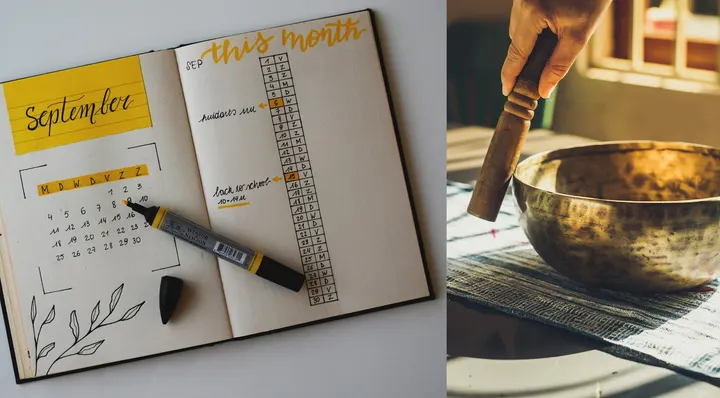 September
M D W D V Z Z
1 2 3
4 5 6 7 8 10
11 12 13 14 15 16
18 19 20 21 22
25 26 27 28 29 30
SEP this month
1 V
2 Z
3 Z
4 M
5 D
huidarts 6 W
7 D
8 V
9 Z
10 Z
11 M
12 D
13 W
14 D
back to school 15 V
10-14u 16 Z
17 Z
18 M
19 D
20 W
21 D
22 V
23 Z
24 Z
25 M
26 D
27 W
28 D
29 V
30 Z